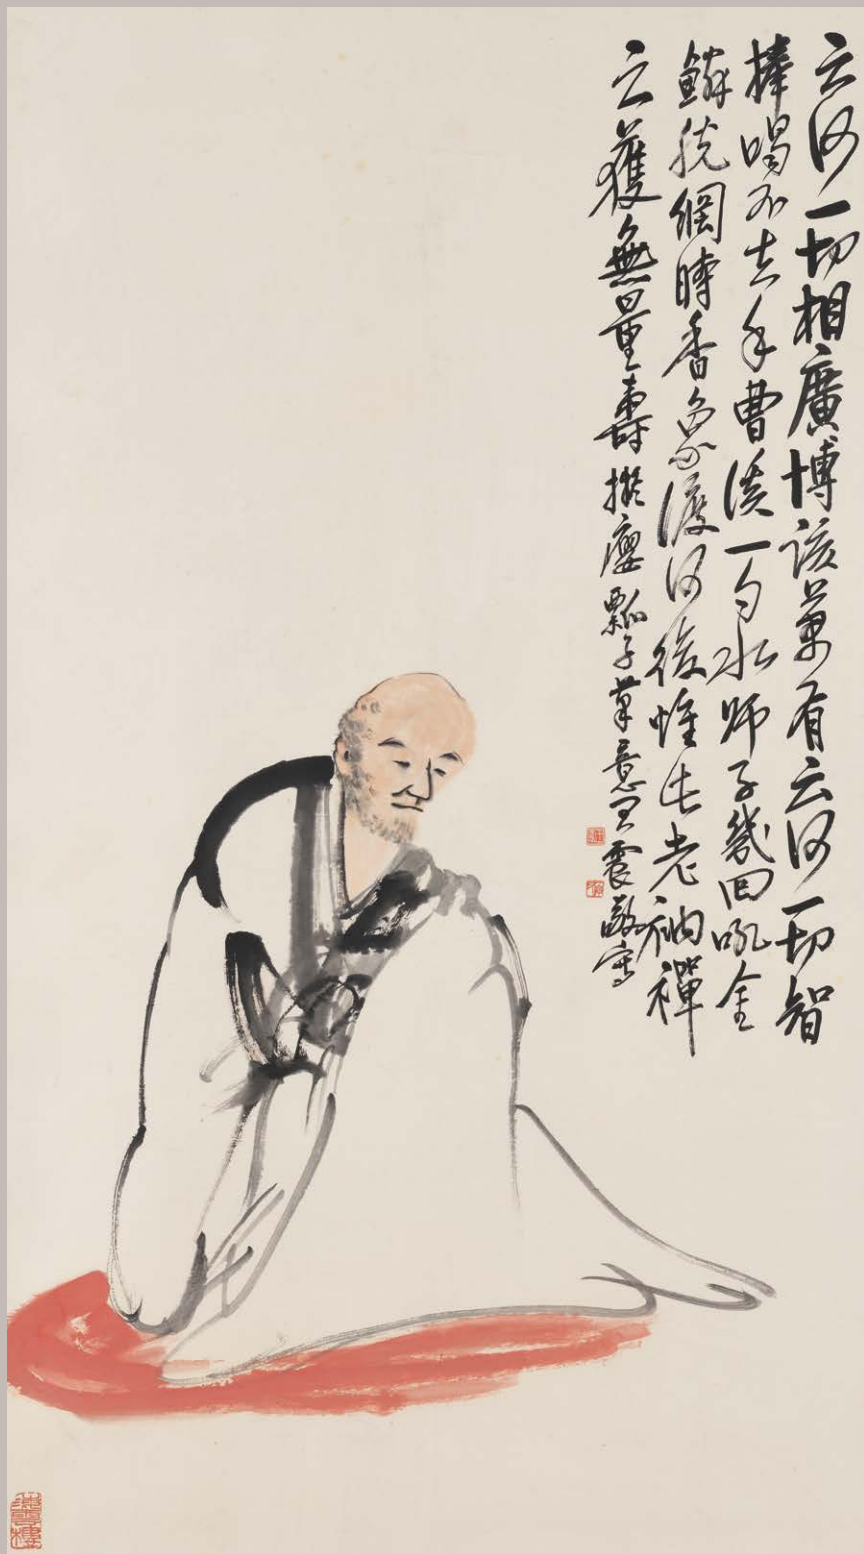 云何一切相廣博該萬有云何一切智
棒喝不去手曹溪一勺水师子幾回吼金
鱗脫網時香象渡河後惟此老衲禪
之獲無量壽擬癭瓢子筆意王震敬寫